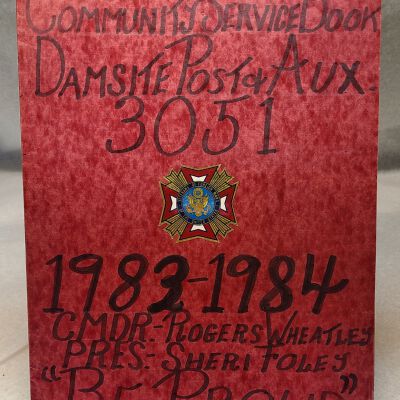 COMMUNITY SERVICE BOOK
DAMSITE POST & AUX.
3051
1983-1984
CMDR.- ROGERS WHEATLEY
PRES.- SHERI FOLEY
"BE PROUD"